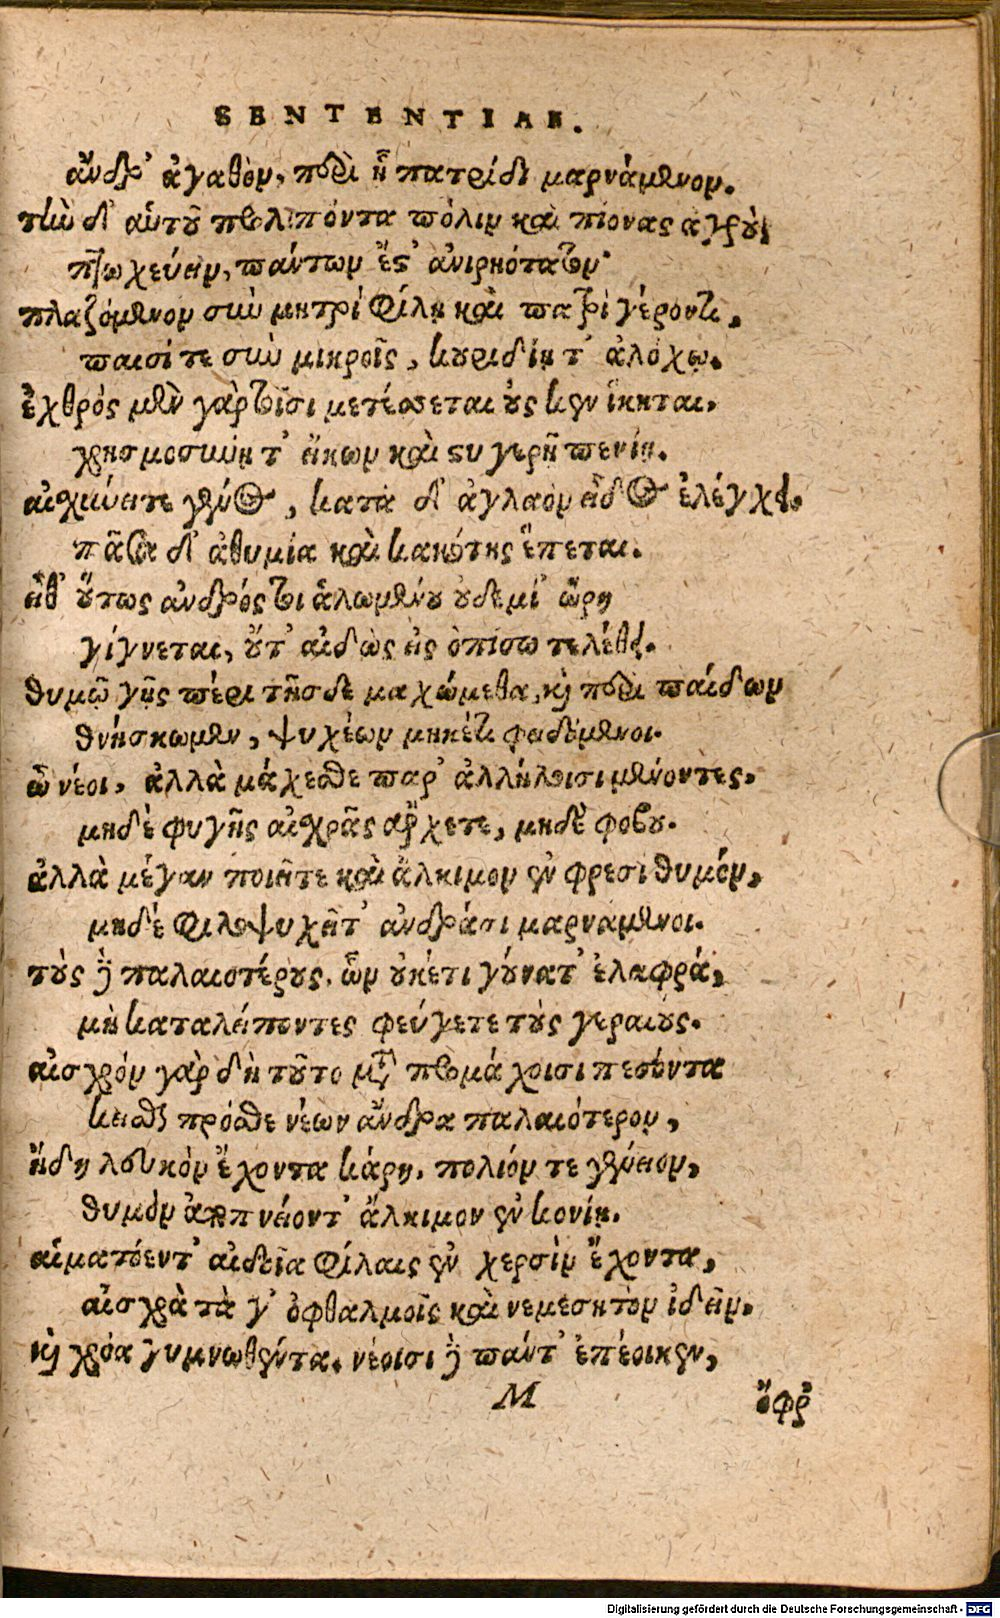 SENTENTIAE.
ἄνδρ' ἀγαθὸν, περὶ ᾗ πατρίδι μαρνάμενον.
τὴν δ' αὑτοῦ προλιπόντα πόλιν καὶ πίονας ἀγροὺς
πτωχεύειν, πάντων ἔστ' ἀνιηρότατον·
πλαζόμενον σὺν μητρὶ φίλῃ καὶ πατρὶ γέροντι,
παισί τε σὺν μικροῖς, κουριδίῃ τ' ἀλόχῳ.
ἐχθρὸς μὲν γὰρ τοῖσι μετέσσεται οὕς κεν ἵκηται,
χρησμοσύνῃ τ' εἴκων καὶ στυγερῇ πενίῃ.
αἰσχύνει τε γένος, κατὰ δ' ἀγλαὸν εἶδος ἐλέγχει.
πᾶσα δ' ἀθυμία καὶ κακότης ἕπεται.
εἶθ' οὕτως ἀνδρός τοι ἀλωμένου οὐδεμί' ὤρη
γίγνεται, οὔτ' αἰδὼς εἰς ὀπίσω τελέθει.
θυμῷ γῆς πέρι τῆσδε μαχώμεθα, καὶ περὶ παίδων
θνήσκωμεν, ψυχέων μηκέτι φειδόμενοι.
ὦ νέοι, ἀλλὰ μάχεσθε παρ' ἀλλήλοισι μένοντες.
μηδὲ φυγῆς αἰσχρᾶς ἄρχετε, μηδὲ φόβου.
ἀλλὰ μέγαν ποιεῖτε καὶ ἄλκιμον ἐν φρεσὶ θυμόν,
μηδὲ φιλοψυχεῖτ' ἀνδράσι μαρνάμενοι.
τοὺς δὲ παλαιοτέρους, ὧν οὐκέτι γούνατ' ἐλαφρά,
μὴ καταλείποντες φεύγετε τοὺς γεραιούς.
αἰσχρὸν γὰρ δὴ τοῦτο μετὰ προμάχοισι πεσόντα
κεῖσθαι πρόσθε νέων ἄνδρα παλαιότερον,
ἤδη λευκὸν ἔχοντα κάρη, πολιόν τε γένειον,
θυμὸν ἀποπνείοντ' ἄλκιμον ἐν κονίῃ.
αἱματόεντ' αἰδοῖα φίλαις ἐν χερσὶν ἔχοντα,
αἰσχρὰ τά γ' ὀφθαλμοῖς καὶ νεμεσητὸν ἰδεῖν.
καὶ χρόα γυμνωθέντα. νέοισι δὲ πάντ' ἐπέοικεν,
M ὄφρ
Digitalisierung gefördert durch die Deutsche Forschungsgemeinschaft - DFG